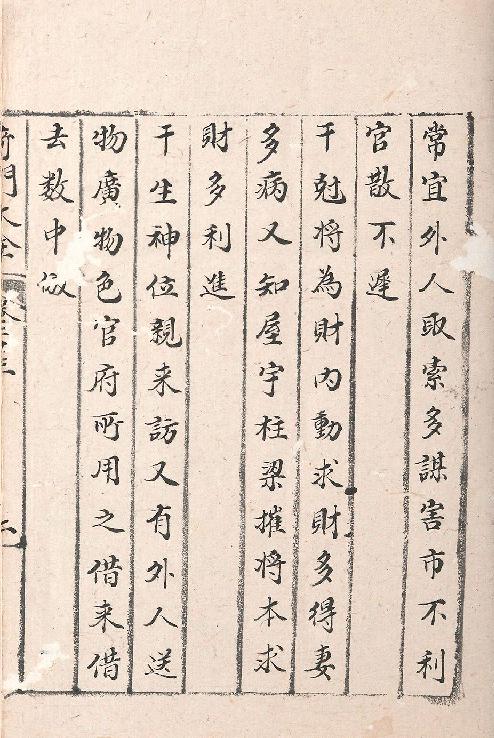 常宜外人取索多謀害市不利
官散不遲
干尅將為財內動求財多得妻
多病又知屋宇柱梁摧將本求
財多利進
干生神位親来訪又有外人送
物廣物色官府所用之借来借
去数中
門大全